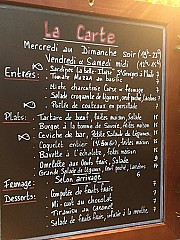 La Carte
Mercredi au Dimanche soir (19h-22h)
Vendredi & Samedi midi (12h-
Entrées: Sardines la belle-Iloise
Tomate Mozza au basilic
Mixte charcuterie Corse & fromage
Salade croquante de légumes,
Poêlée de couteaux en persillade
Plats: Tartare de bœuf, frites maison, Salade
Burger à la tomme de Savoie, frites maison
Ceviche de bar, Petite Salade de légumes
Coquelet entier frites maison
Bavette à l'échalote, frites maison
Omelette aux œufs frais, Salade
Grande Salade de légumes,
Fromage: Selon arrivage
Desserts: Compotée de fruits frais
Mi-cuit au chocolat
Tiramisu au caramel
Salade de fruits frais, infusée à la menthe